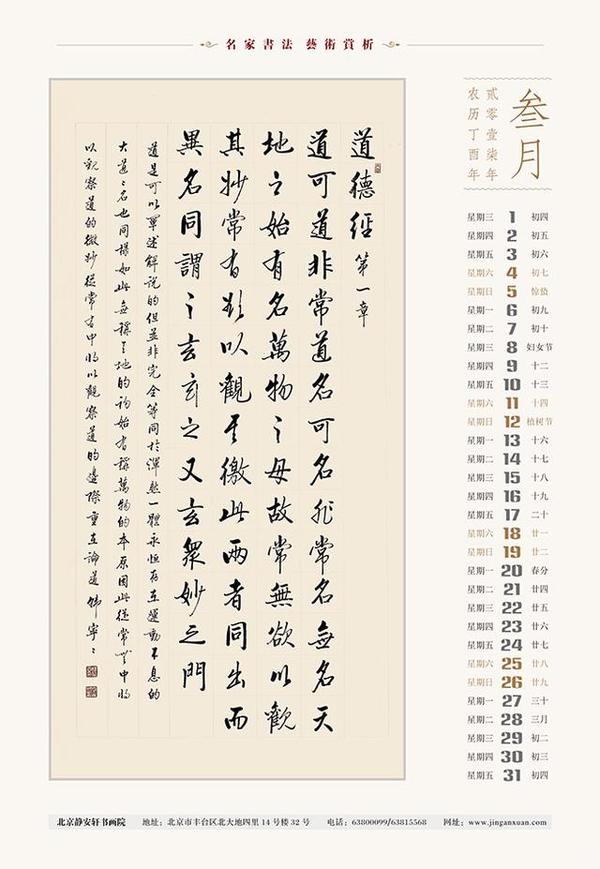 名家書法 藝術賞析
叁月
貳零壹柒年
农历丁酉年
道德經 第一章
道可道非常道名可名非常名無名天
地之始有名萬物之母故常無欲以觀
其妙常有欲以觀其徼此兩者同出而
異名同謂之玄玄之又玄眾妙之門
道是可以單述解說的但並非完全等同於渾然一體永恒存在運動不息的
大道道名也同樣如此無稱天地的初始有稱萬物的本原因此從常無中將
以觀察道的微妙從常有中將以觀察道的邊際重在論道 韩寧寧
星期三 1 初四
星期四 2 初五
星期五 3 初六
星期六 4 初七
星期日 5 惊蛰
星期一 6 初九
星期二 7 初十
星期三 8 妇女节
星期四 9 十二
星期五 10 十三
星期六 11 十四
星期日 12 植树节
星期一 13 十六
星期二 14 十七
星期三 15 十八
星期四 16 十九
星期五 17 二十
星期六 18 廿一
星期日 19 廿二
星期一 20 春分
星期二 21 廿四
星期三 22 廿五
星期四 23 廿六
星期五 24 廿七
星期六 25 廿八
星期日 26 廿九
星期一 27 三十
星期二 28 三月
星期三 29 初二
星期四 30 初三
星期五 31 初四
北京静安轩书画院 地址：北京市丰台区北大地四里14号楼32号 电话：63800099/63815568 网址：www.jinganxuan.com